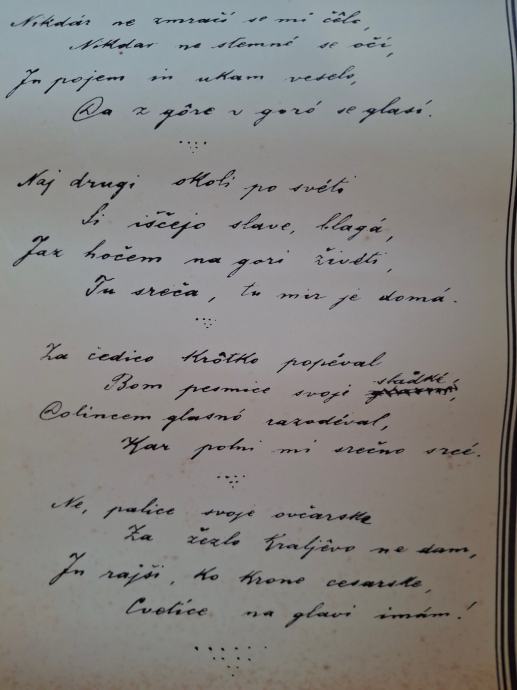 Nikdár ne zmračí se mi čélo,
Nikdar ne stemné se očí,
In pojem in ukam veselo,
Da z gôre v goró se glasí.
Naj drugi okoli po svéti
Si iščejo slave, blagá,
Jaz hočem na gori živéti,
Tu sreča, tu mir je domá.
Za čedico krôtko popéval
Bom pesmice svoje sladké,
Dolincem glasnó razodéval,
Kar polni mi srečno srcé.
Ne, palice svoje ovčarske
Za žezlo Kraljêvo ne dam,
In rajši, ko Krone cesarske,
Cvetice na glavi imám!